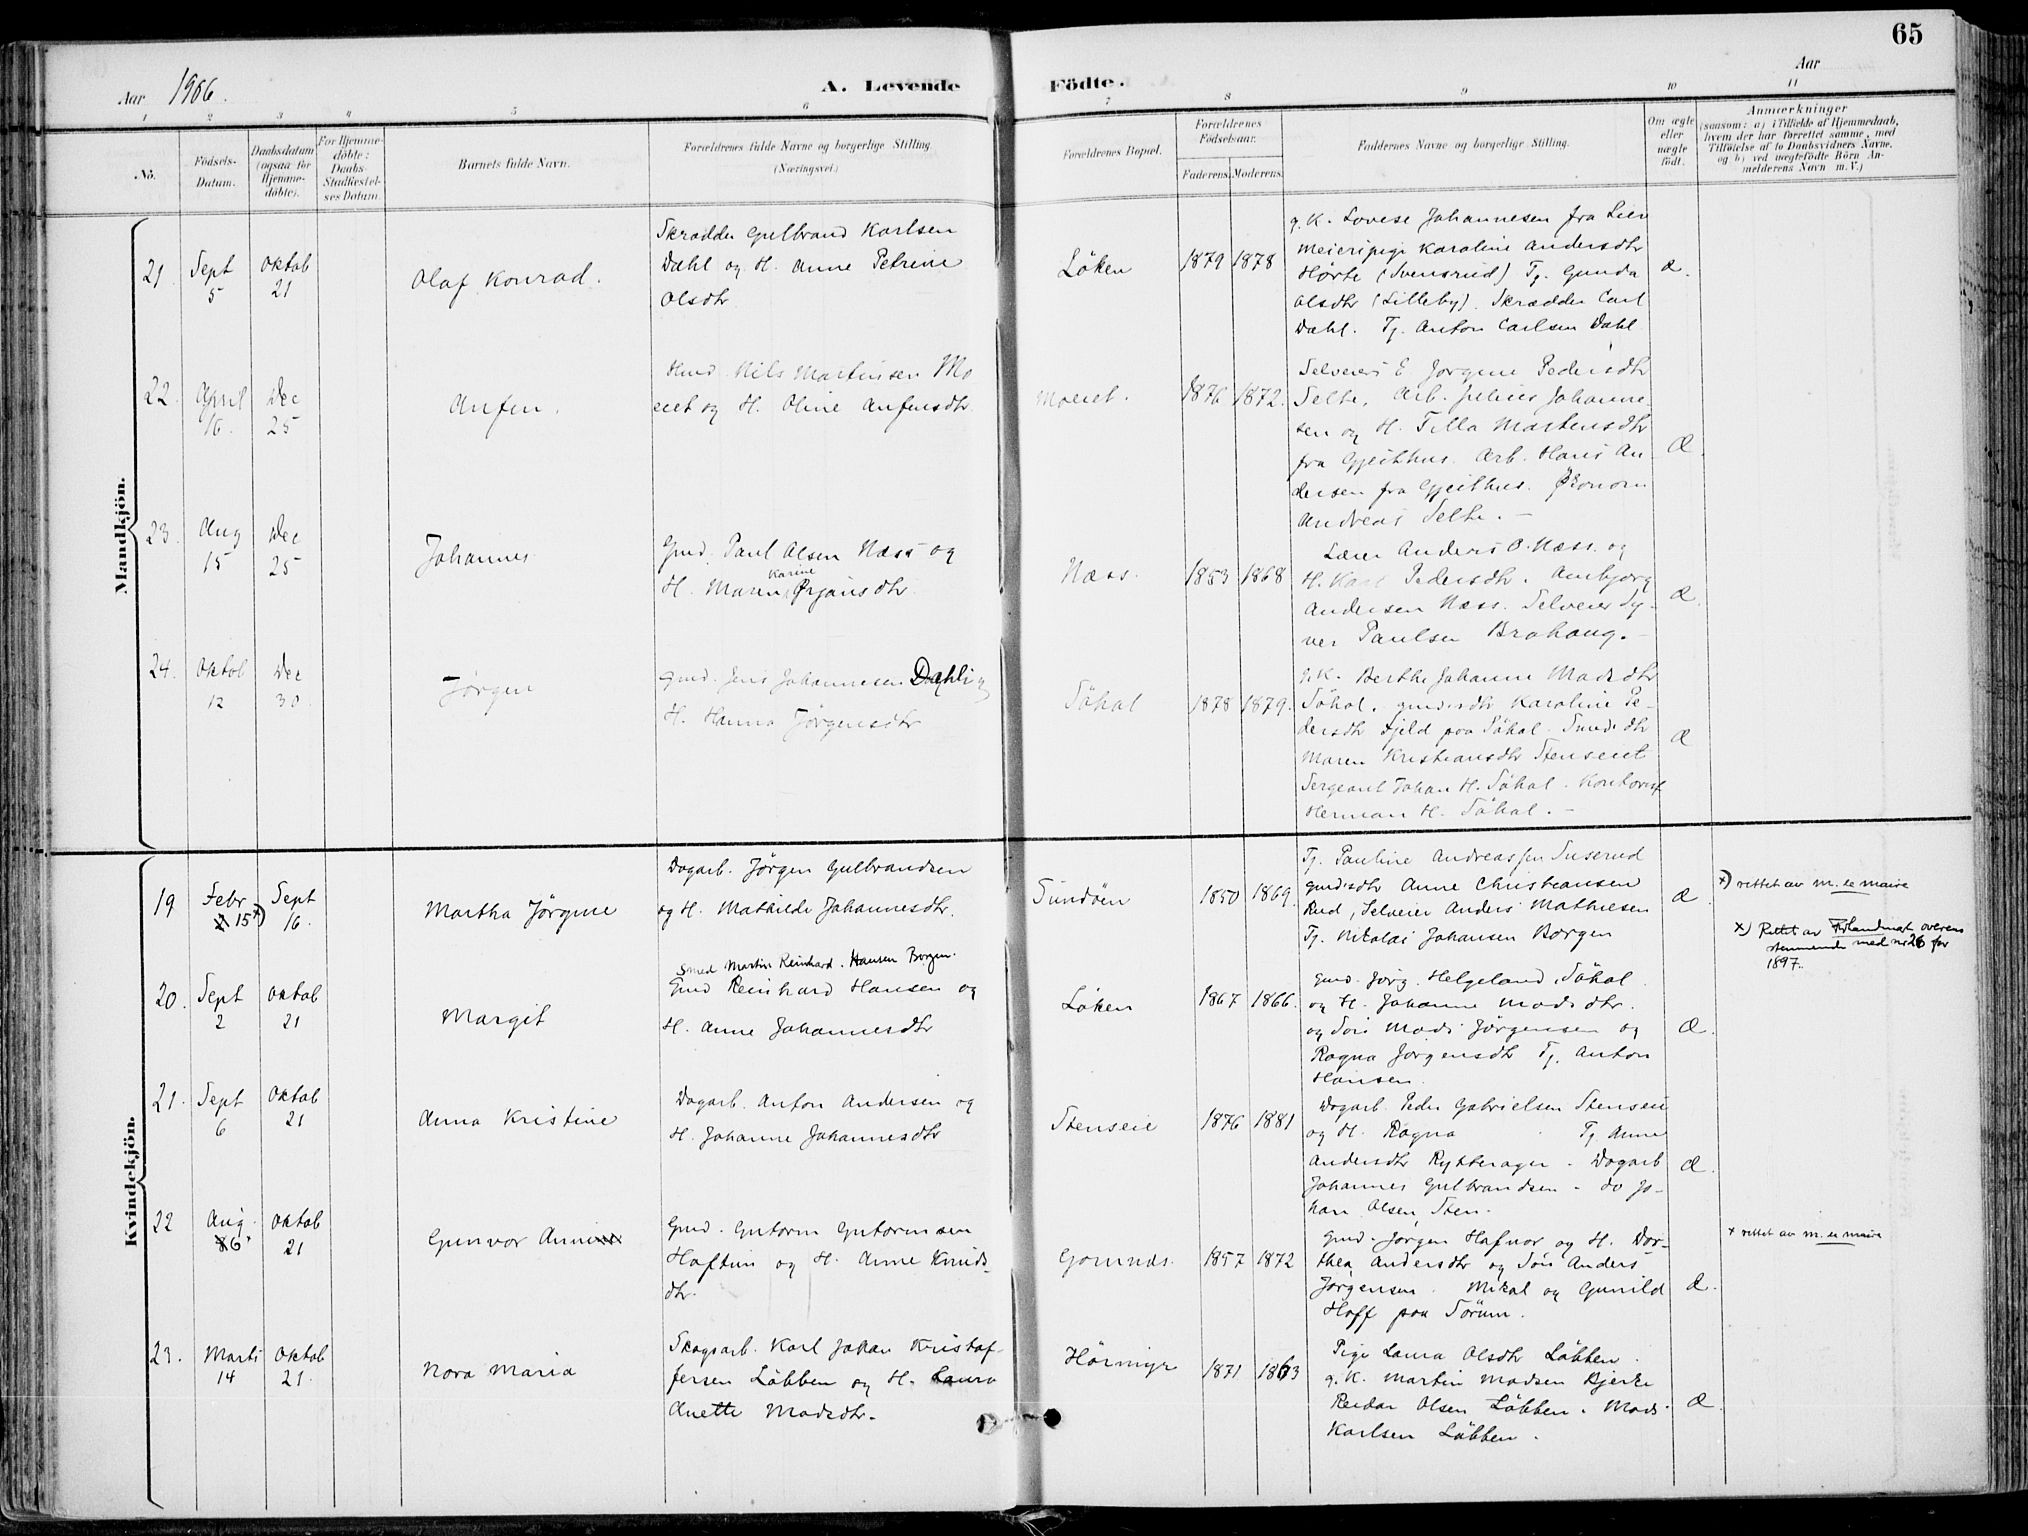 65
Aar 1906.
A. Levende Födte.
Aar
1 2 3 4 5 6 7 8 9 10 11
Nö.
Födsels-Datum.
Daabsdatum (ogsaa for Hjemme-döbte).
For Hjemme-döbte: Daabs-Stadfæstel-ses Datum
Barnets fulde Navn.
Forældrenes fulde Navne og borgerlige Stilling
(Næringsvei.)
Forældrenes Bopæl.
Forældrenes Födselsaar.
Faderens. Moderens.
Faddernes Navne og borgerlige Stilling.
Om ægte eller uægte födt.
Anmærkninger
(saasom: a) i Tilfælde af Hjemmedaab,
hvem der har forrettet samme, med
Tilföielse af to Daabsvidners Navne.
og b) ved uægtefödte Börn An-
melderens Navn m.V.)
Mandkjön.
21. Sept 5 Oktob 21
Olaf Konrad.
Skrædder Gulbrand Karlsen
Dahl og H. Anne Petrine
Olsdtr
Löken 1879 1878
g. K. Lovise Johannesen fra Lier
Meieripige Karoline Andersdtr
Hörte (Svensrud) Tj. Gunda
Olsdtr (Lilleby). Skrædder Carl
Dahl. Tj. Anton Carlsen Dahl
Æ.
22. April 16. Dec 25
Anfin.
Gmd. Nils Martinsen Mo
eiet og H. Oline Anfinsdtr.
Moeiet. 1876 1872.
Selveiers E Jörgine Pedersdtr
Selte, Arb. Julius Johanne-
sen og H. Tilla Martensdtr
fra Gjeithus. Arb. Hans An
dersen fra Gjeithus. Ökonom
Andreas Selte. –
Æ.
23. Aug 15 Dec 25
Johannes
Gmd. Paul Olsen Næss og
Karine
H. Maren Örjansdtr.
Næss. 1853 1868
Lærer Anders O. Næss. og
H. Kari Pedersdtr. Ambjörg
Andersen Næss. Selveier Sy-
ver Paulsen Brahaug. –
Æ.
24. Oktob 12 Dec 30
Jörgen
Gmd. Jens Johannesen Dahl og
H. Hanna Jörgensdtr
Söhol 1878 1879.
g. K. Berthe Johanne Madsdtr
Söhol. Gmdsdtr Karoline Pe-
dersdtr Fjeld paa Söhol. Smedsdtr
Maren Kristiansdtr Stenseiet
Sergeant Johan H. Söhol. Kontorist
Herman H. Söhol. –
Æ
Kvindekjön.
19 Febr 15 +) Sept 16.
Martha Jörgine
Dagarb. Jörgen Gulbrandsen
og H. Mathilde Johannesdtr.
Sundöen 1850 1869.
Tj. Pauline Andreassen Suserud
Gmdsdtr Anne Christiansen
Rud, Selveier Anders Mathiesen
Tj. Nikolai Johansen Borgen
Æ.
+) rettet av m. ee maire
20. Sept 2 Oktob 21
Margit
Smed Martin Reinhard Hansen Borgen.
Gmd Reinhard Hansen og
H. Anne Johannesdtr
Löken 1867 1866.
Gmd. Jörg. Helgeland, Söhol
og H. Johanne Madsdtr.
og Sön Mads Jörgensen og
Ragna Jörgensdtr Tj. Anton
Hansen.
Æ.
x) Rettet av overens
stemmende med nr 26 for
1897.
21. Sept 6 Oktob 21
Anna Kristine
Dagarb. Anton Andersen og
H. Johanne Johannesdtr
Stenseie 1876 1881
Dagarb. Peder Gabrielsen Stenseie
og H. Ragna Tj. Anne
Andersdtr Rytterager. Dagarb
Johannes Gulbrandsen. do Jo-
han Olsen, Sten.
Æ.
22 Aug. 6+ Oktob 21
Gunvor Anni
Gmd. Guttorm Guttormsen
Haftun og H. Anne Knuds-
dtr.
Gomnæs. 1857 1872
Gmd. Jörgen Hafnor og H. Dor-
thea Andersdtr og Sön Anders
Jörgensen. Mikal og Gunild
Hoff paa Sörum.
Æ.
+ rettet av m. ee maire
23. Marts 14 Oktob 21.
Nora Maria
Skogsarb. Karl Johan Kristof-
fersen Löbben og H. Laura
Anette Madsdtr.
Hörmyr 1871 1863
Pige Laura Olsdtr Löbben.
g. K. Martin Madsen Bjerke
Reidar Olsen Löbben. Mads
Karlsen Löbben.
Æ.